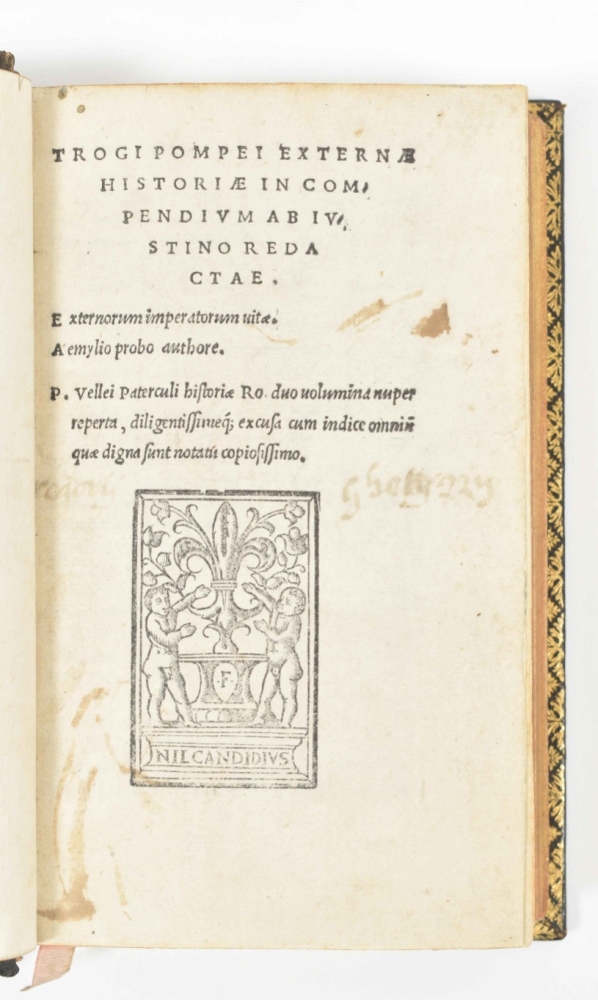 TROGI POMPEI EXTERNÆ
HISTORIÆ IN COM,
PENDIVM AB IV,
STINO REDA
CTAE.
Externorum imperatorum uitæ.
Aemylio probo authore.
P. Vellei Paterculi historiæ Ro. duo uolumina nuper
reperta, diligentissimeq; excusa cum indice omniũ
quæ digna sunt notatu copiosissimo.
F
NIL CANDIDIVS